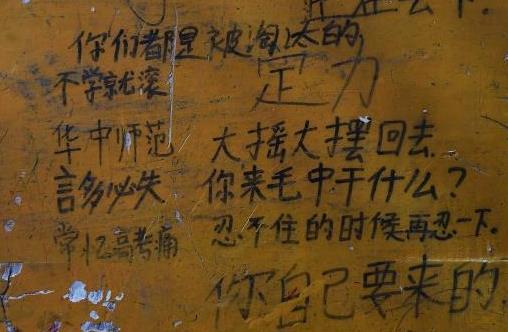 你们都是被淘汰的
不学就滚
定力
华中师范
大摇大摆回去
言多必失
你来毛中干什么？
常忆高考痛
忍不住的时候再忍一下.
你自己要来的